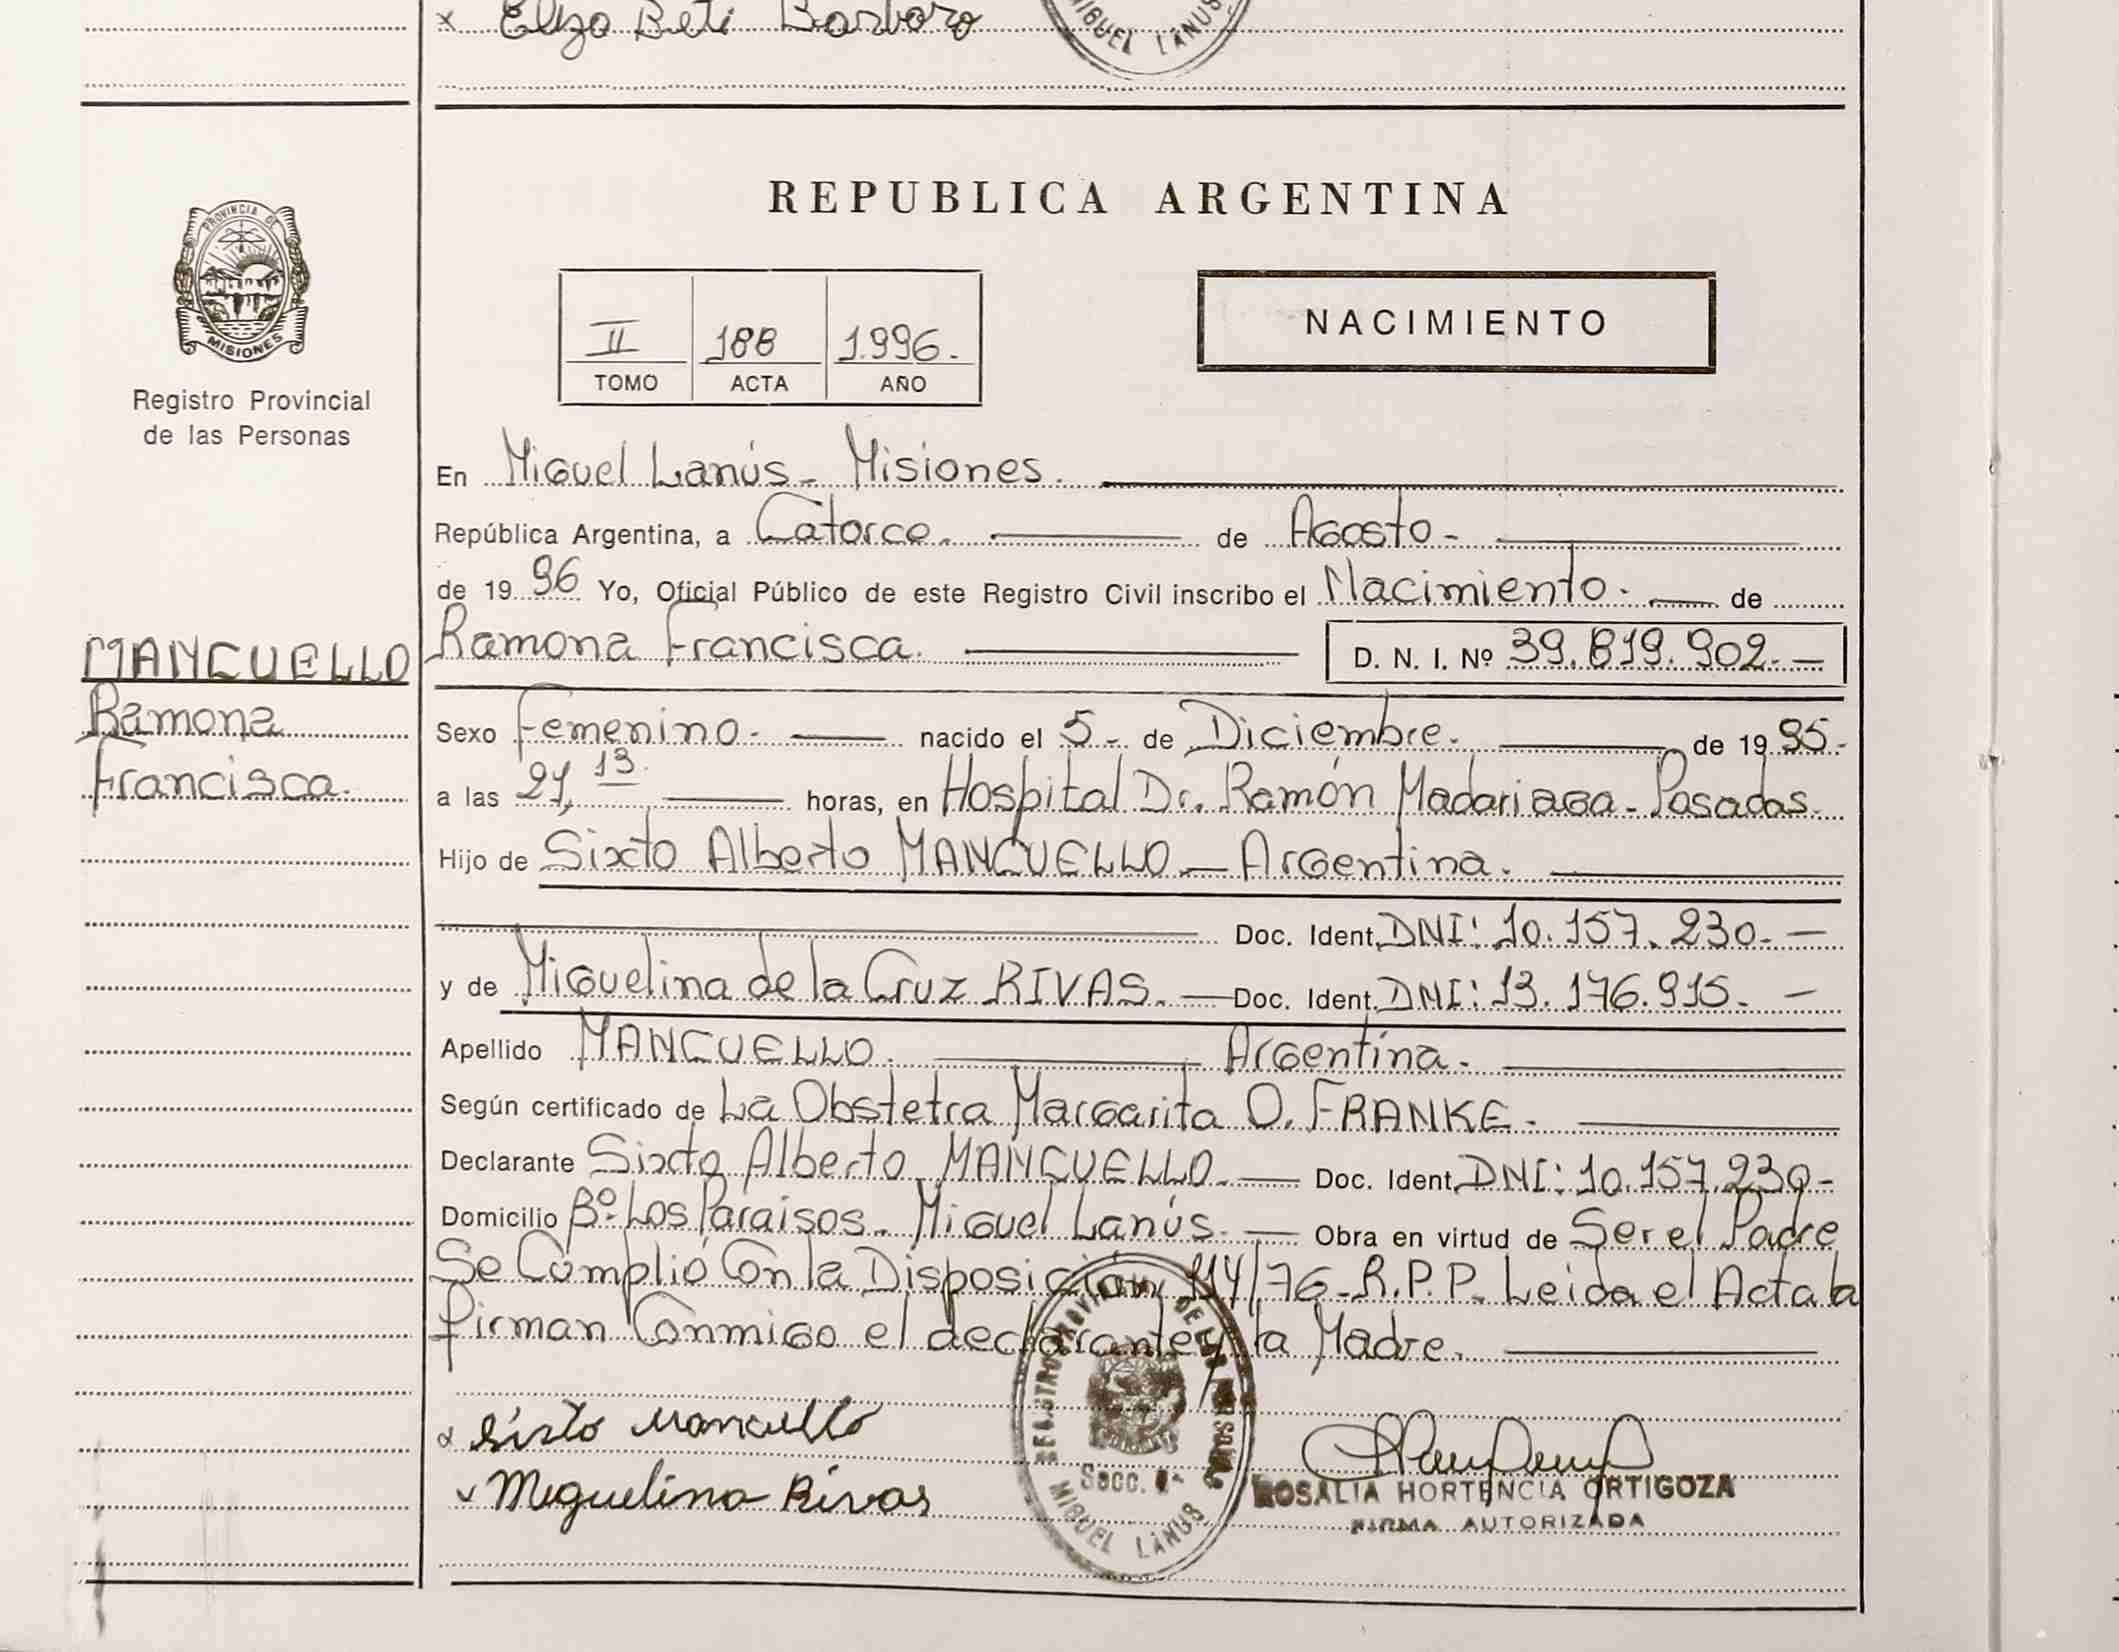 x Elza Beti Barboro
MIGUEL LANUS
PROVINCIA DE
MISIONES
Registro Provincial
de las Personas
REPUBLICA ARGENTINA
II 188 1.996.-
TOMO ACTA AÑO
NACIMIENTO
En Miguel Lanús - Misiones.
República Argentina, a Catorce. de Agosto -
de 19 96 Yo, Oficial Público de este Registro Civil inscribo el Nacimiento. de
MANCUELLO
Ramona
Francisca.
Ramona Francisca. D. N. I. Nº 39.819.902.-
Sexo Femenino. nacido el 5 - de Diciembre. de 19 95.-
a las 21,13 horas, en Hospital Dr. Ramón Madariaga - Posadas.
Hijo de Sixto Alberto MANCUELLO - Argentina.
Doc. Ident. DNI: 10.157.230.-
y de Miguelina de la Cruz RIVAS. - Doc. Ident. DNI: 13.176.915. -
Apellido MANCUELLO. Argentina.
Según certificado de La Obstetra Margarita O. FRANKE.
Declarante Sixto Alberto MANCUELLO. - Doc. Ident. DNI: 10.157.230-
Domicilio Bº Los Paraisos. Miguel Lanús. - Obra en virtud de Ser el Padre
Se Cumplió Con la Disposición 114/76 - R.P.P. Leida el Acta la
firman Conmigo el declarante y la Madre.
x Sixto Mancuello
x Miguelina Rivas
REGISTRO PROVINCIAL DE LAS PERSONAS
Secc.
MIGUEL LANUS
ROSALIA HORTENCIA ORTIGOZA
FIRMA AUTORIZADA